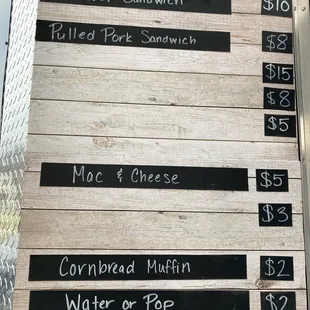 Sandwich $10
Pulled Pork Sandwich $8
$15
$8
$5
Mac & Cheese $5
$3
Cornbread Muffin $2
Water or Pop $2